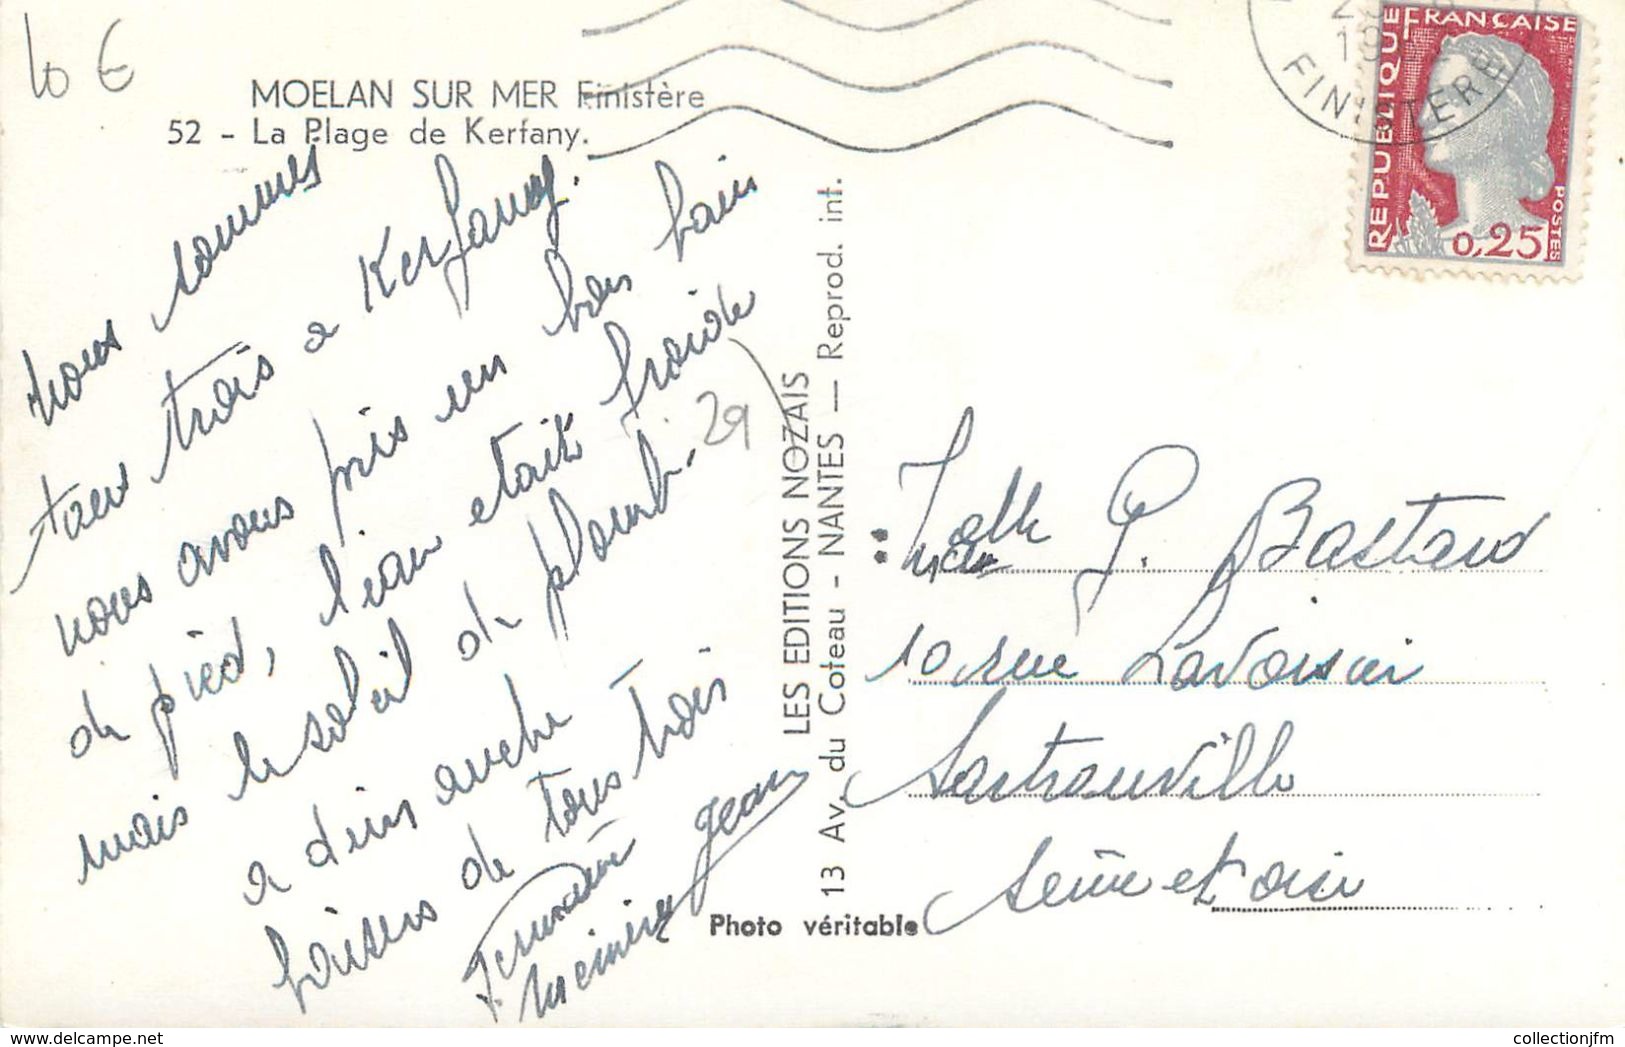 10 €
MOELAN SUR MER Finistère
52 - La Plage de Kerfany.
nous sommes
tous trois a Kerfany.
nous avons pris un bon bain
de pied, l'eau etait froide
mais le soleil de plomb.
a dimanche
baisers de tous trois
Jean
29
LES EDITIONS NOZAIS
13 Av. du Coteau - NANTES — Reprod. int.
Photo véritable
FINISTERE
REPUBLIQUE FRANÇAISE
POSTES
0,25
Melle P. Bastard
10 rue Lavoisier
Sartrouville
Seine et Oise
collectionjfm